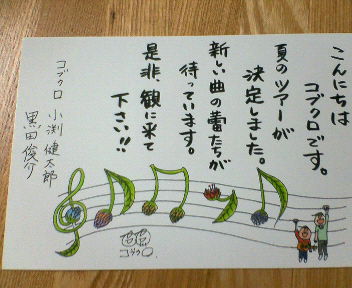 こんにちは
コブクロです。
夏のツアーが
決定しました。
新しい曲の蕾たちが
待っています。
是非、観に来て
下さい!!
コブクロ 小渕 健太郎
黒田 俊介
コブクロ